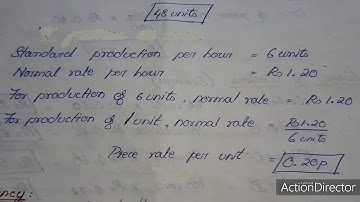 48 units
Standard production per hour = 6 units
Normal rate per hour = Rs 1.20
For production of 6 units, normal rate = Rs 1.20
For production of 1 unit, normal rate = Rs 1.20
6 units
Piece rate per unit = 0.20p
ActionDirector